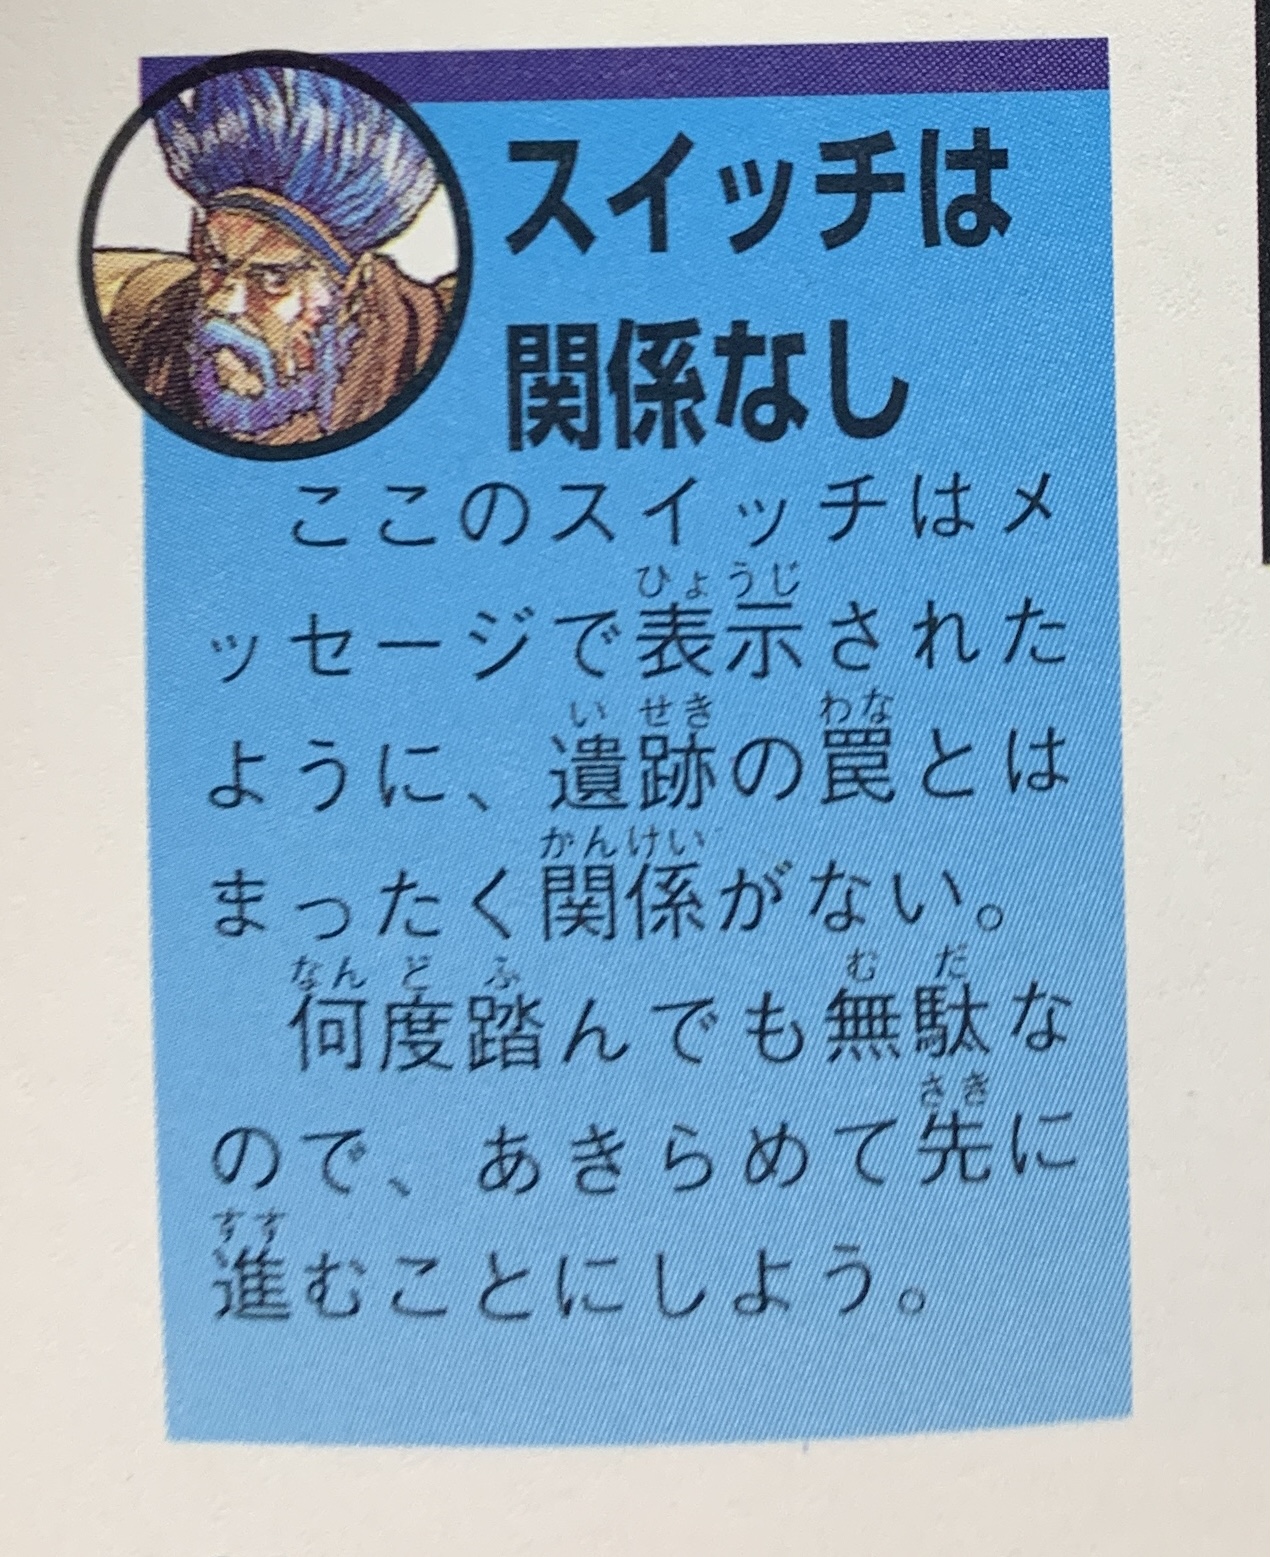 スイッチは
関係なし
ここのスイッチはメ
ひょうじ
ッセージで表示された
いせき わな
ように、遺跡の罠とは
かんけい
まったく関係がない。
なんど ふ むだ
何度踏んでも無駄な
さき
ので、あきらめて先に
すす
進むことにしよう。